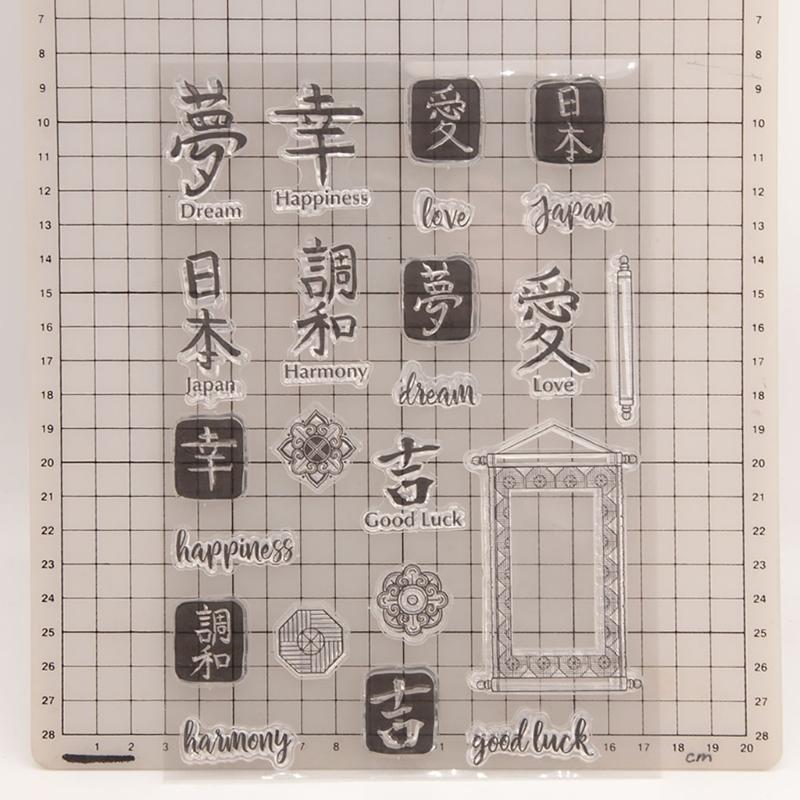 7 7
8 8
9 9
夢 幸 愛 日本
10 10
11 11
12 12
Dream Happiness love Japan
13 13
14 14
日本 調和 夢 愛
15 15
16 16
17 17
Japan Harmony dream Love
18 18
19 19
幸 吉
20 20
21 21
Good Luck
22 22
happiness
23 23
24 24
調和
25 25
26 26
吉
27 27
harmony good luck
28 1 2 3 7 8 1 16 17 18 19 20 28
cm